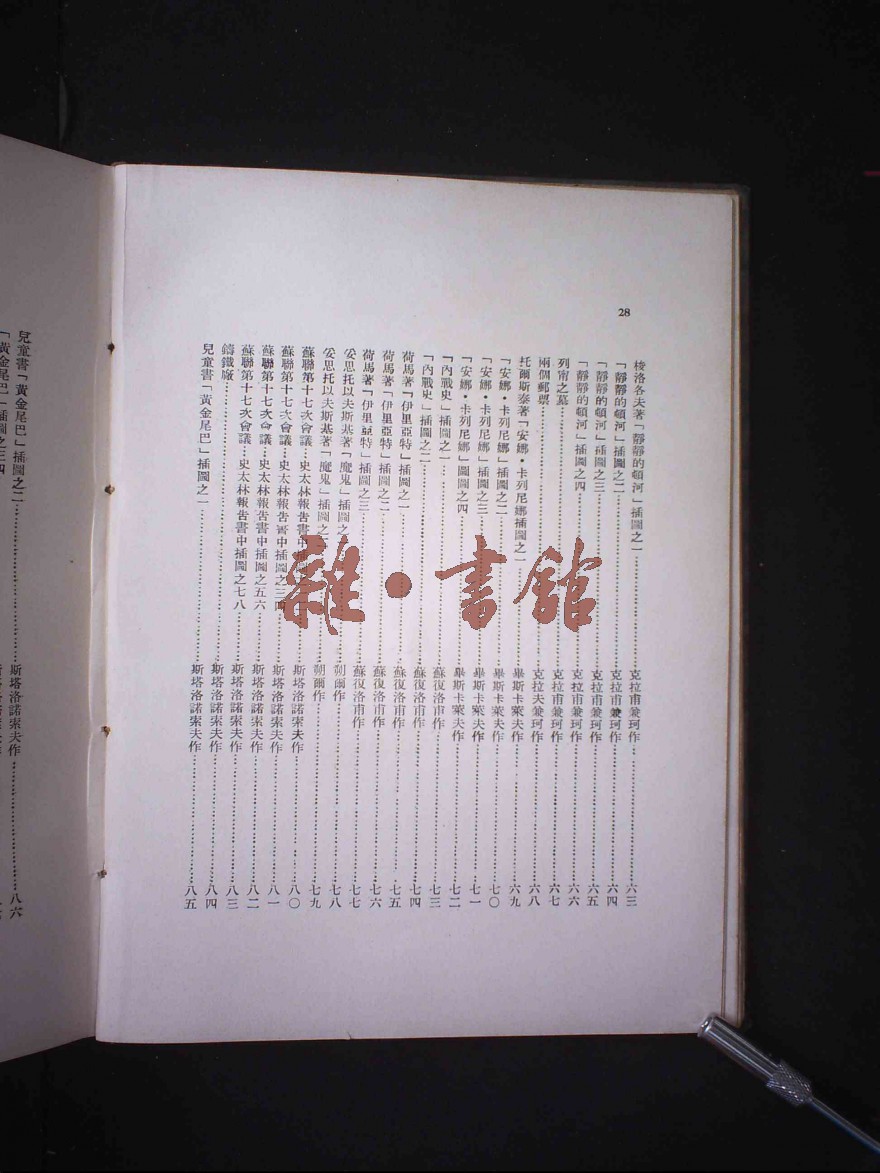 28
梭洛各夫著「靜靜的頓河」插圖之一……克拉甫兼珂作……六三
「靜靜的頓河」插圖之二……克拉甫兼珂作……六四
「靜靜的頓河」插圖之三……克拉甫兼珂作……六五
「靜靜的頓河」插圖之四……克拉甫兼珂作……六六
列甯之墓……克拉甫兼珂作……六七
兩個郵票……克拉夫兼珂作……六八
托爾斯泰著「安娜·卡列尼娜插圖之一……畢斯卡萊夫作……六九
「安娜·卡列尼娜」插圖之二……畢斯卡萊夫作……七〇
「安娜·卡列尼娜」插圖之三……畢斯卡萊夫作……七一
「安娜·卡列尼娜」圖圖之四……畢斯卡萊夫作……七二
「內戰史」插圖之一……蘇復洛甫作……七三
「內戰史」插圖之二……蘇復洛甫作……七四
荷馬著「伊里亞特」插圖之一……蘇復洛甫作……七五
荷馬著「伊里亞特」插圖之二……蘇復洛甫作……七六
荷馬著「伊里亞特」插圖之三……蘇復洛甫作……七七
妥思托以夫斯基著「魔鬼」插圖之……朔爾作……七八
妥思托以夫斯基著「魔鬼」插圖之……朔爾作……七九
蘇聯第十七次會議…史太林報告書中插圖……斯塔洛諾索夫作……八〇
蘇聯第十七次會議…史太林報告書中插圖之三四……斯塔洛諾索夫作……八一
蘇聯第十七次會議…史太林報告書中插圖之五六……斯塔洛諾索夫作……八二
蘇聯第十七次會議…史太林報告書中插圖之七八……斯塔洛諾索夫作……八三
鑄鐵廠……斯塔洛諾索夫作……八四
兒童書「黃金尾巴」插圖之一……斯塔洛諾索夫作……八五
兒童書「黃金尾巴」插圖之二……斯塔洛諾索夫作……八六
「黃金尾巴」插圖之三四
雜·書館